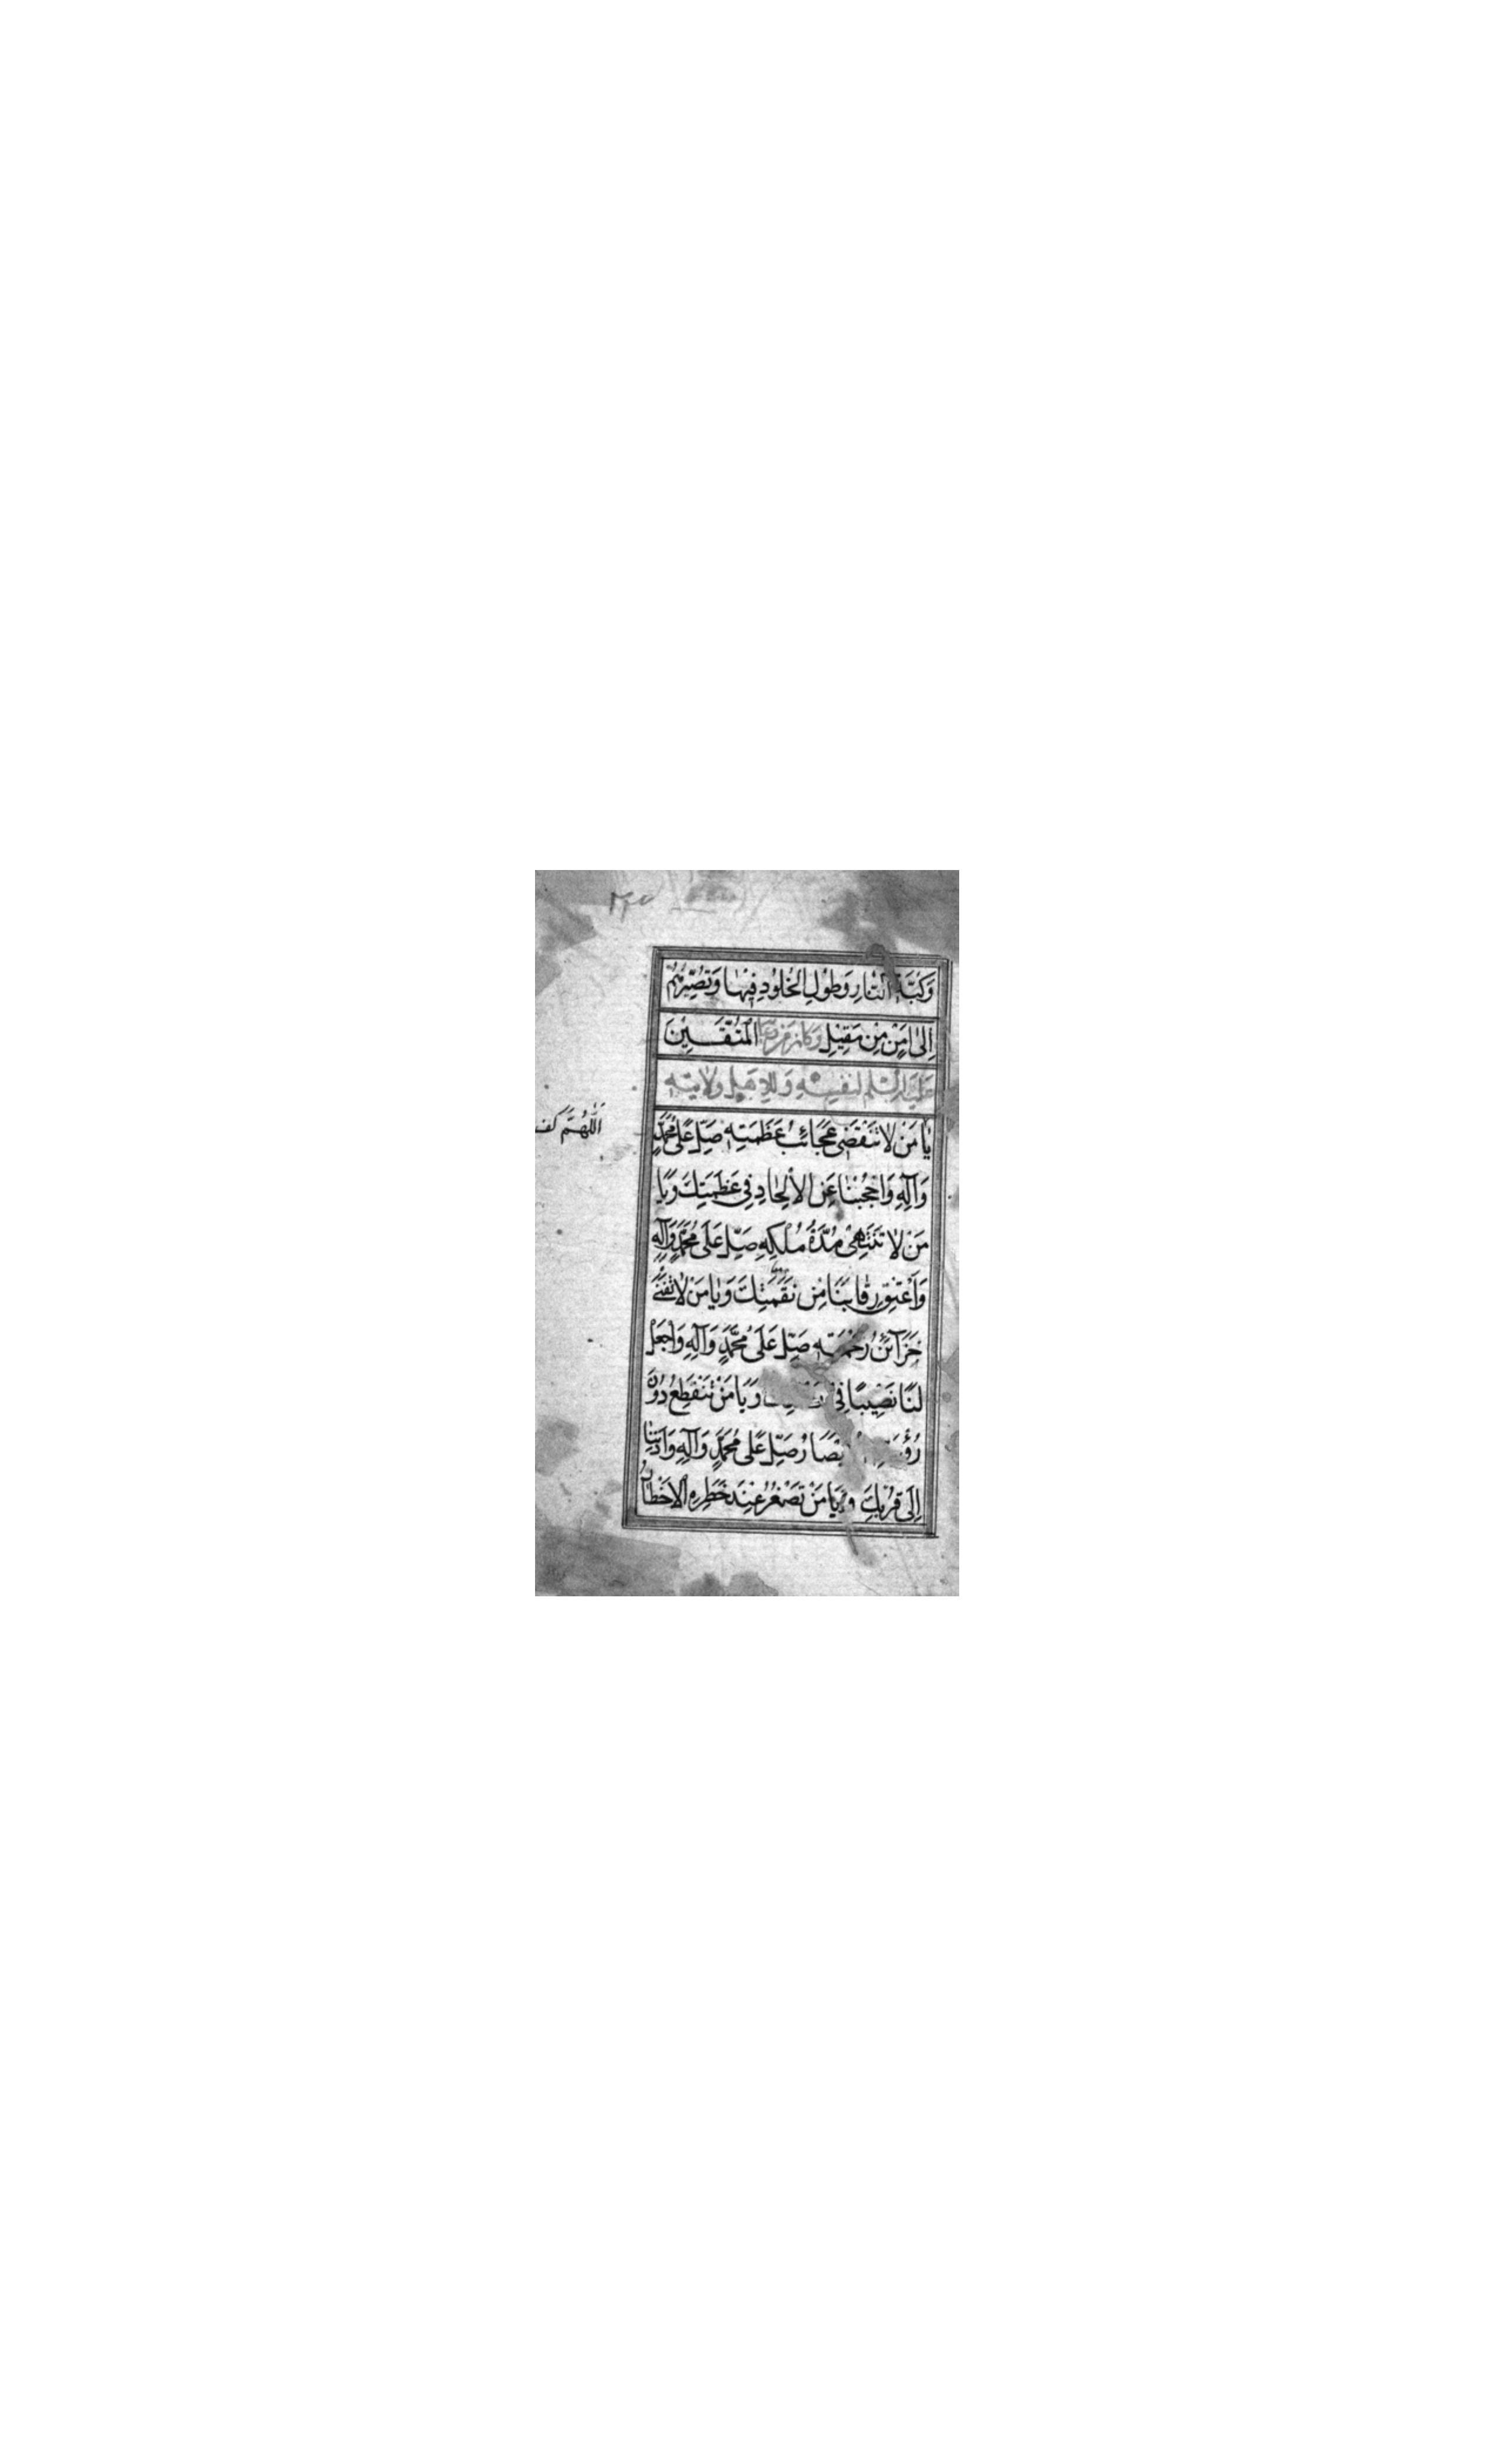 وَكَبَّةِ النَّارِ وَطُولِ الْخُلُودِ فِيهَا وَتُصَيِّرَهُمْ
إِلَىٰ أَمْنٍ مِنْ مَقِيلِ الْمُتَّقِينَ وَكَانَ مِنْ دُعَائِهِ
عَلَيْهِ السَّلَمُ لِنَفْسِهِ وَلِاَهْلِ وِلَايَتِهِ
يَا مَنْ لَا تَنْقَضِي عَجَائِبُ عَظَمَتِهِ صَلِّ عَلَى مُحَمَّدٍ
وَآلِهِ وَاحْجُبْنَا عَنِ الْاِلْحَادِ فِي عَظَمَتِكَ وَيَا
مَنْ لَا تَنْتَهِي مُدَّةُ مُلْكِهِ صَلِّ عَلَى مُحَمَّدٍ وَآلِهِ
وَأَعْتِقْ رِقَابَنَا مِنْ نَقِمَتِكَ وَيَا مَنْ لَا تَفْنَىٰ
خَزَآئِنُ رَحْمَتِهِ صَلِّ عَلَى مُحَمَّدٍ وَآلِهِ وَاجْعَلْ
لَنَا نَصِيبًا فِي وَيَا مَنْ تَنْقَطِعُ دُونَ
صَلِّ عَلَى مُحَمَّدٍ وَآلِهِ وَأَدْنِنَا
إِلَى قُرْبِكَ وَيَا مَنْ تَصْغُرُ عِنْدَ خَطَرِهِ الْاَخْطَارُ
اَللّٰهُمَّ